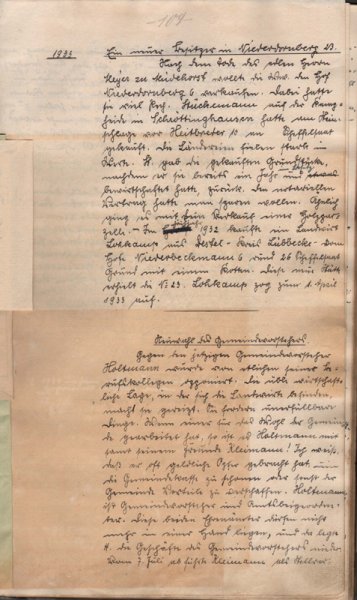 -109-
1933 Ein neuer Besitzer in Niederdornberg 23.
Nach dem Tode des edlen Herrn
Meyer zu Müdehorst wollte die Ww. den Hof
Niederdornberg 6 verkaufen. Dabei hatte
sie viel Pech. Stückemann auf der Kamp-
heide in Schröttinghausen hatte am
schlage vor Heitbreder 10 an Scheffelsaat
gekauft. Die Ländereien fielen stark im
Werte. St. gab die gekauften Grundstücke,
nachdem er sie bereits ein Jahr und etwas
bewirtschaftet hatte, zurück. Den notariellen
Vertrag hatte man sparen wollen. Ähnlich
ging es mit dem Verkauf einer Holzpar-
zelle. - Im 1932 kaufte ein Landwirt
Lohkamp aus Destel - Kreis Lübbecke - vom
Hofe Niederbeckmann 6 rund 26 Scheffelsaat
Grund mit einem Kotten. Diese neue Stätte
erhielt die Nr. 23. Lohkamp zog zum 1. April
1933 auf.
Neuwahl des Gemeindevorstehers.
Gegen den jetzigen Gemeindevorsteher
Holtmann wurde von etlichen seiner Be-
rufskollegen opponiert. Die üble wirtschaft-
liche Lage, in der sich die Landwirte befinden,
macht sie gereizt. Sie fordern unerfüllbare
Dinge. Wenn einer für das Wohl der Gemein-
de gearbeitet hat, so ist es Holtmann mit
samt seinem Freunde Kleimann! Ich weiß,
daß er oft geldliche Opfer gebracht hat, um
die Gemeindekasse zu schonen oder sonst der
Gemeinde Vorteile zu verschaffen. Holtmann
ist Gemeindevorsteher und Amtsbeigeordne-
ter. Diese beiden Ehrenämter dürfen nicht
mehr in einer Hand liegen, und da legte
H. die Geschäfte des Gemeindevorstehers nieder.
Vom 7. Juli ab führte Kleimann als Stellver-